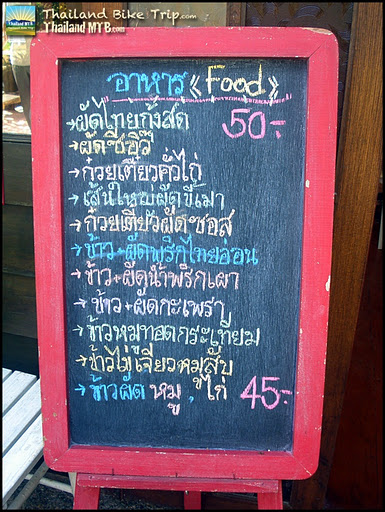 Thailand Bike Trip.com
Thailand MTB.com
อาหาร 《Food》
→ผัดไทยกุ้งสด 50.-
→ผัดซีอิ๊ว
→ก๋วยเตี๋ยวคั่วไก่
→เส้นใหญ่ผัดขี้เมา
→ก๋วยเตี๋ยวผัดซอส
→ข้าว+ผัดพริกไทยอ่อน
→ข้าว+ผัดน้ำพริกเผา
→ข้าว+ผัดกะเพรา
→ข้าวหมูทอดกระเทียม
→ข้าวไข่เจียวหมูสับ
→ข้าวผัด หมู , ไก่ 45.-